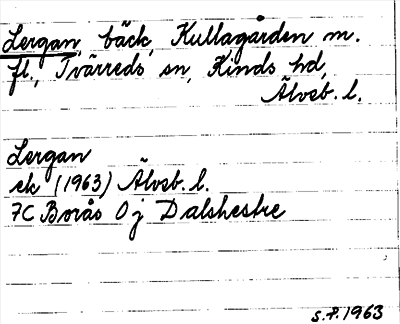 Lergan, bäck, Kullagården m.
fl., Tvärreds sn, Kinds hd,
Älvsb. l.
Lergan
ek (1963) Älvsb. l.
7C Borås 0j Dalshestre
S.F. 1963